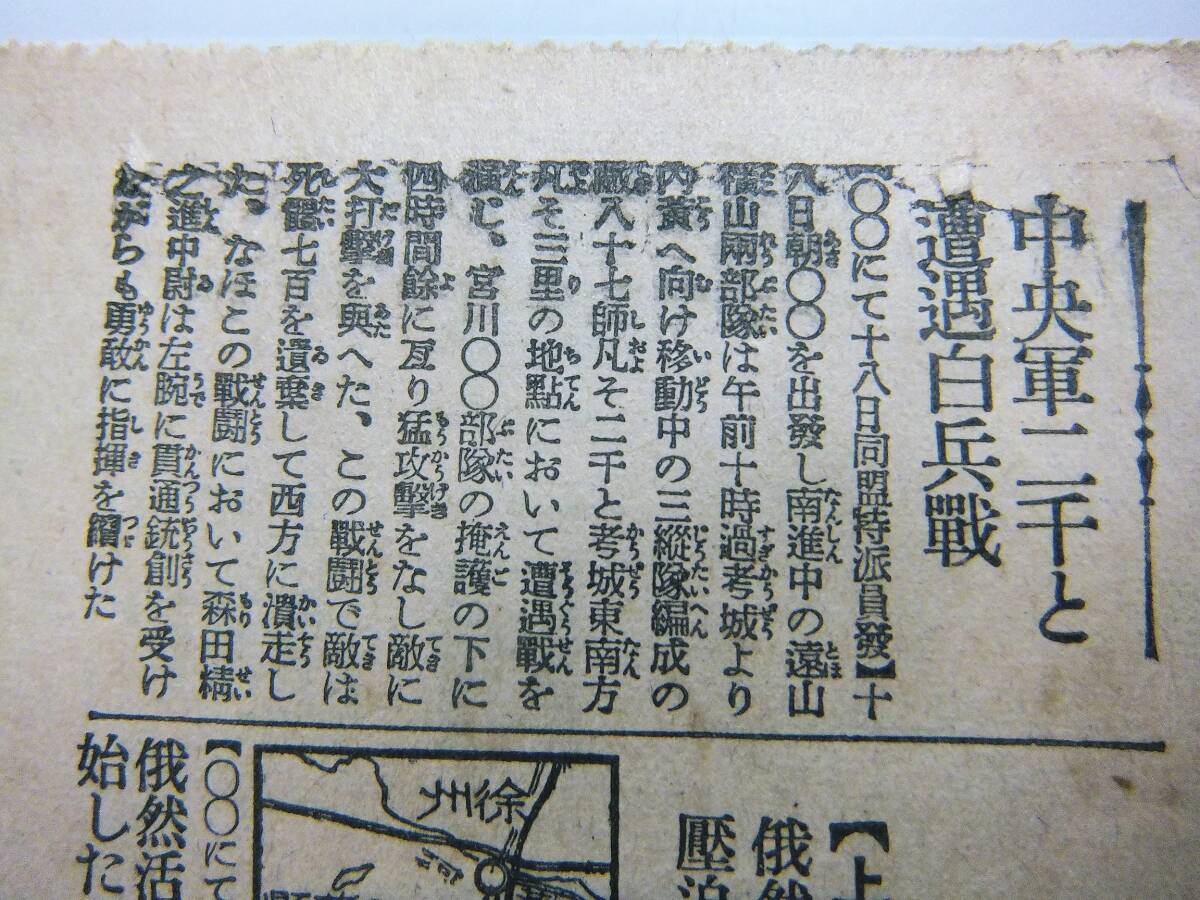 中央軍二千と
遭遇白兵戰
【〇〇にて十八日同盟特派員發】十
八日朝〇〇を出發し南進中の遠山
山兩部隊は午前十時過考城より
內黃へ向け移動中の三縱隊編成の
敵八十七師凡そ二千と考城東南方
凡そ三里の地點において遭遇戰を
演じ、宮川〇〇部隊の掩護の下に
四時間餘に亙り猛攻擊をなし敵に
大打擊を與へた、この戰鬪で敵は
死體七百を遺棄して西方に潰走し
た、なほこの戰鬪において森田精
之進中尉は左腕に貫通銃創を受け
ながらも勇敢に指揮を續けた
【上
俄然
壓迫
徐州
【〇〇にて
俄然活
始した